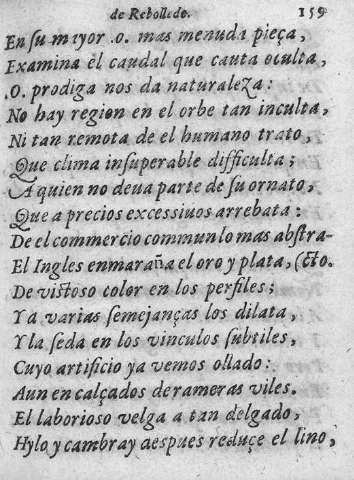 de Rebolledo. 159
En su mayor .o. mas menuda pieça,
Examina el caudal que cauta oculta,
.O. prodiga nos da naturaleza:
No hay region en el orbe tan inculta,
Ni tan remota de el humano trato,
Que clima insuperable difficulta;
A quien no deua parte de su ornato,
Que a precios excessiuos arrebata:
De el commercio commun lo mas abstra-
El Ingles enmaraña el oro y plata, (cto.
De vistoso color en los perfiles;
Y a varias semejanças los dilata,
Y la seda en los vinculos subtiles,
Cuyo artificio ya vemos ollado:
Aun en calçados de rameras viles.
El laborioso velga a tan delgado,
Hylo y cambray despues reduçe el lino,